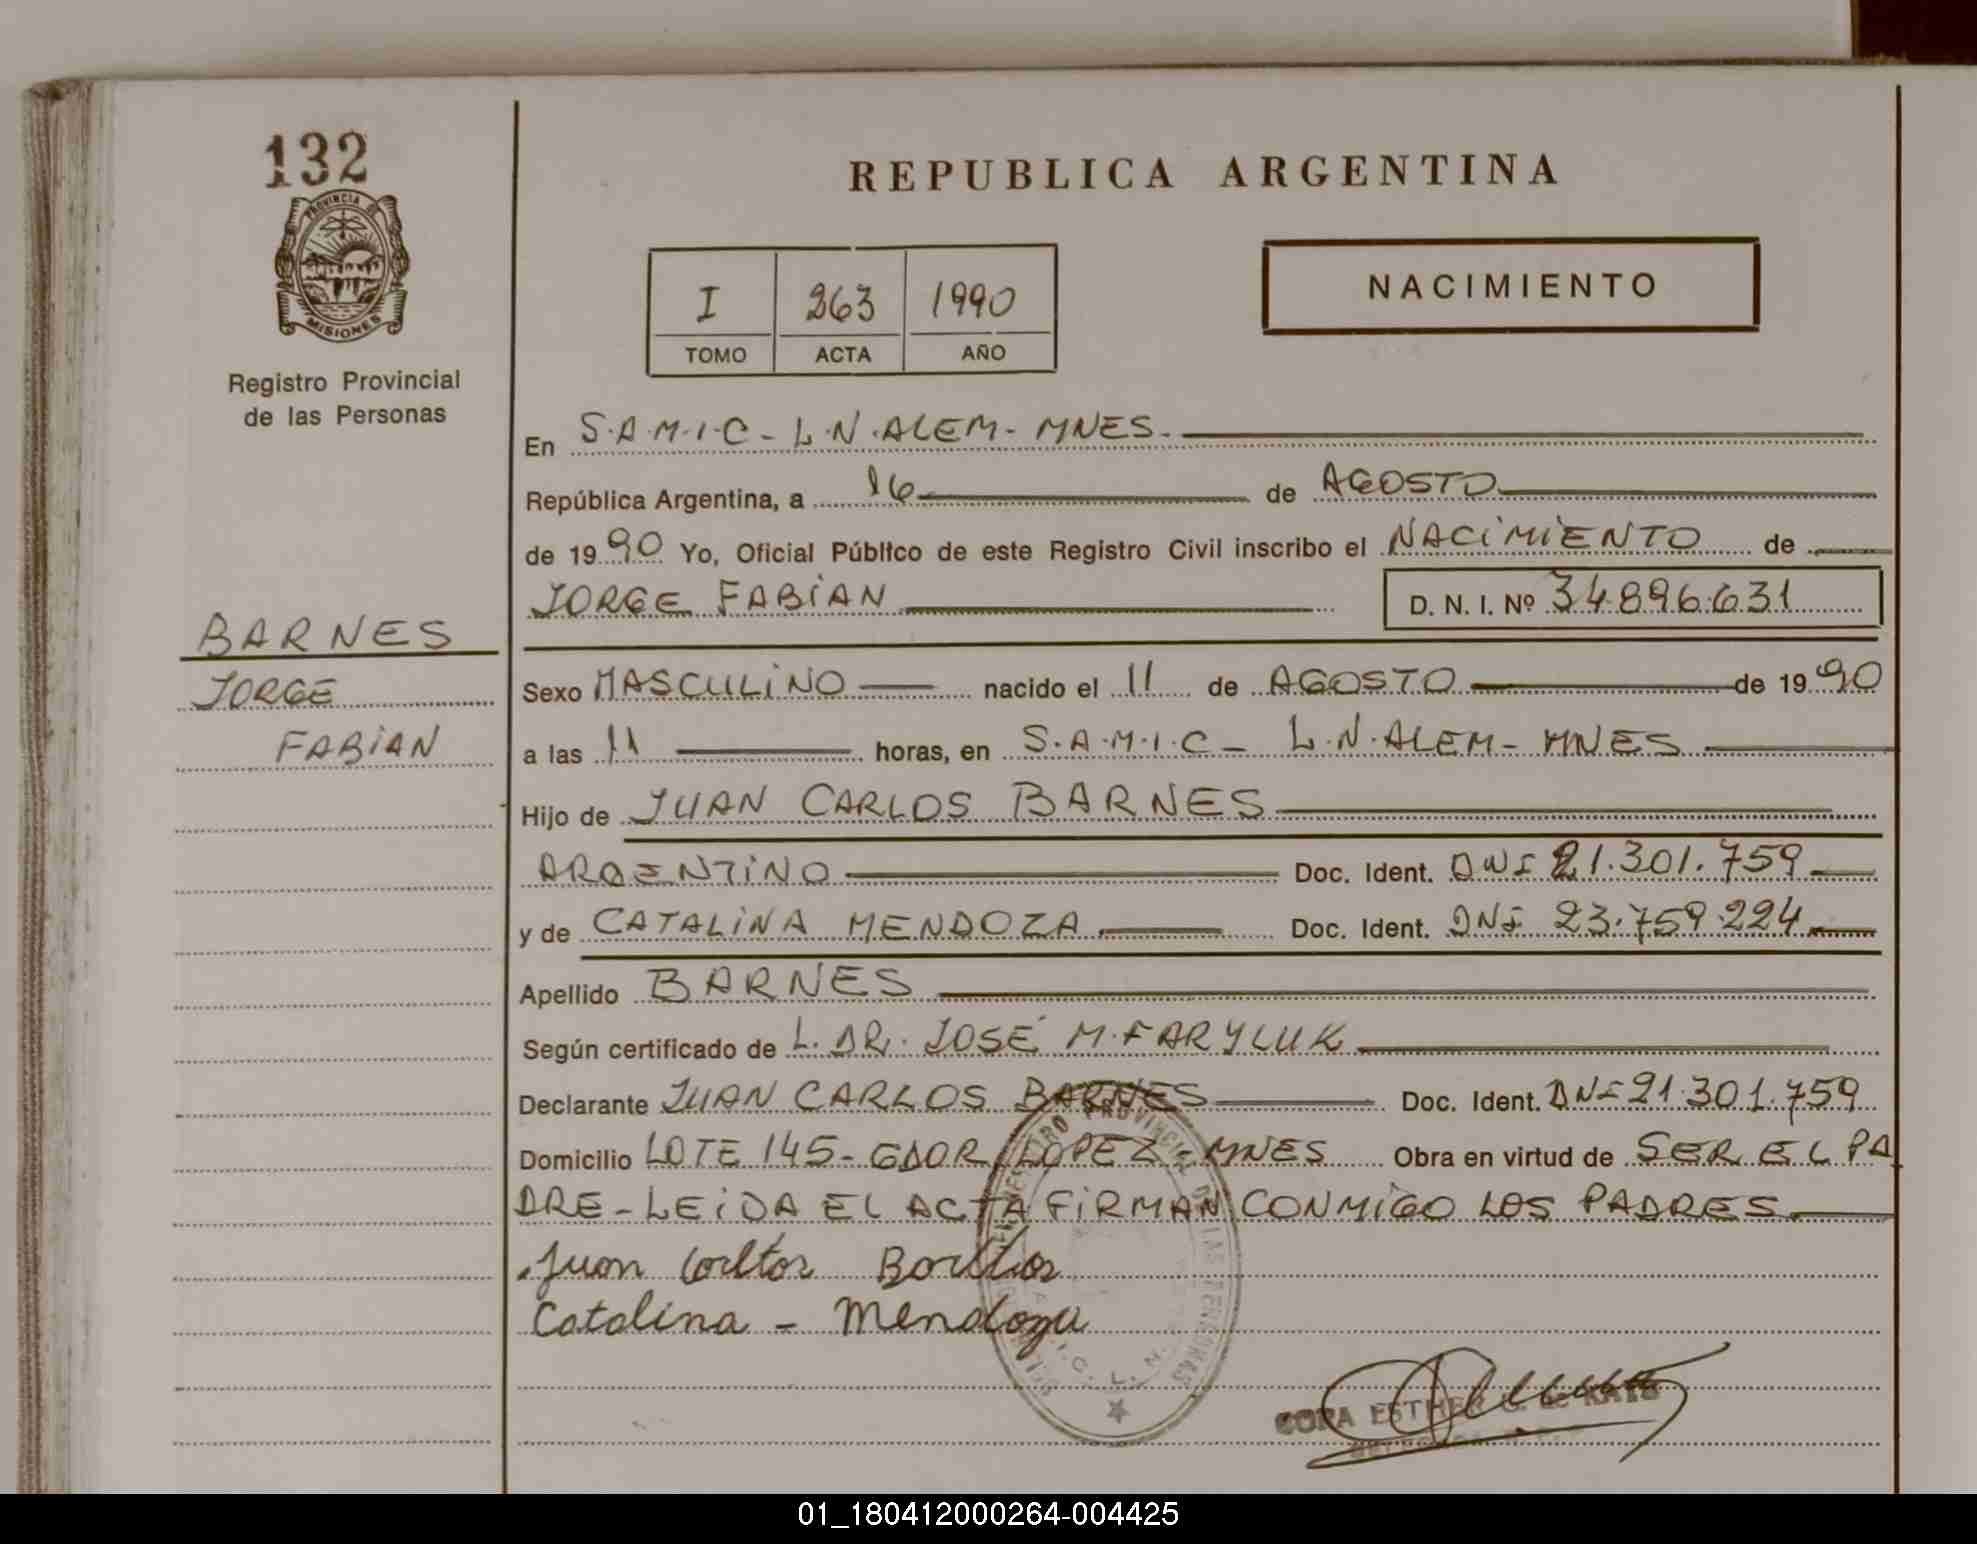 132
PROVINCIA DE
MISIONES
Registro Provincial
de las Personas
BARNES
JORGE
FABIAN
REPUBLICA ARGENTINA
NACIMIENTO
I 263 1990
TOMO ACTA AÑO
En S.A.M.I.C - L.N.ALEM - MNES.
República Argentina, a 16 de AGOSTO
de 1990 Yo, Oficial Público de este Registro Civil inscribo el NACIMIENTO de
JORGE FABIAN D. N. I. Nº 34.896.631
Sexo MASCULINO nacido el 11 de AGOSTO de 1990
a las 11 horas, en S.A.M.I.C - L.N.ALEM - MNES
Hijo de JUAN CARLOS BARNES
ARGENTINO Doc. Ident. DNI 21.301.759
y de CATALINA MENDOZA Doc. Ident. DNI 23.759.224
Apellido BARNES
Según certificado de L. DR. JOSÉ M. FARYLUK
Declarante JUAN CARLOS BARNES Doc. Ident. DNI 21.301.759
Domicilio LOTE 145 - GDOR. LOPEZ - MNES Obra en virtud de SER EL PA
DRE - LEIDA EL ACTA FIRMAN CONMIGO LOS PADRES
Juan
Catalina - Mendoza
REGISTRO PROVINCIAL DE LAS PERSONAS
ESTHER
01_180412000264-004425